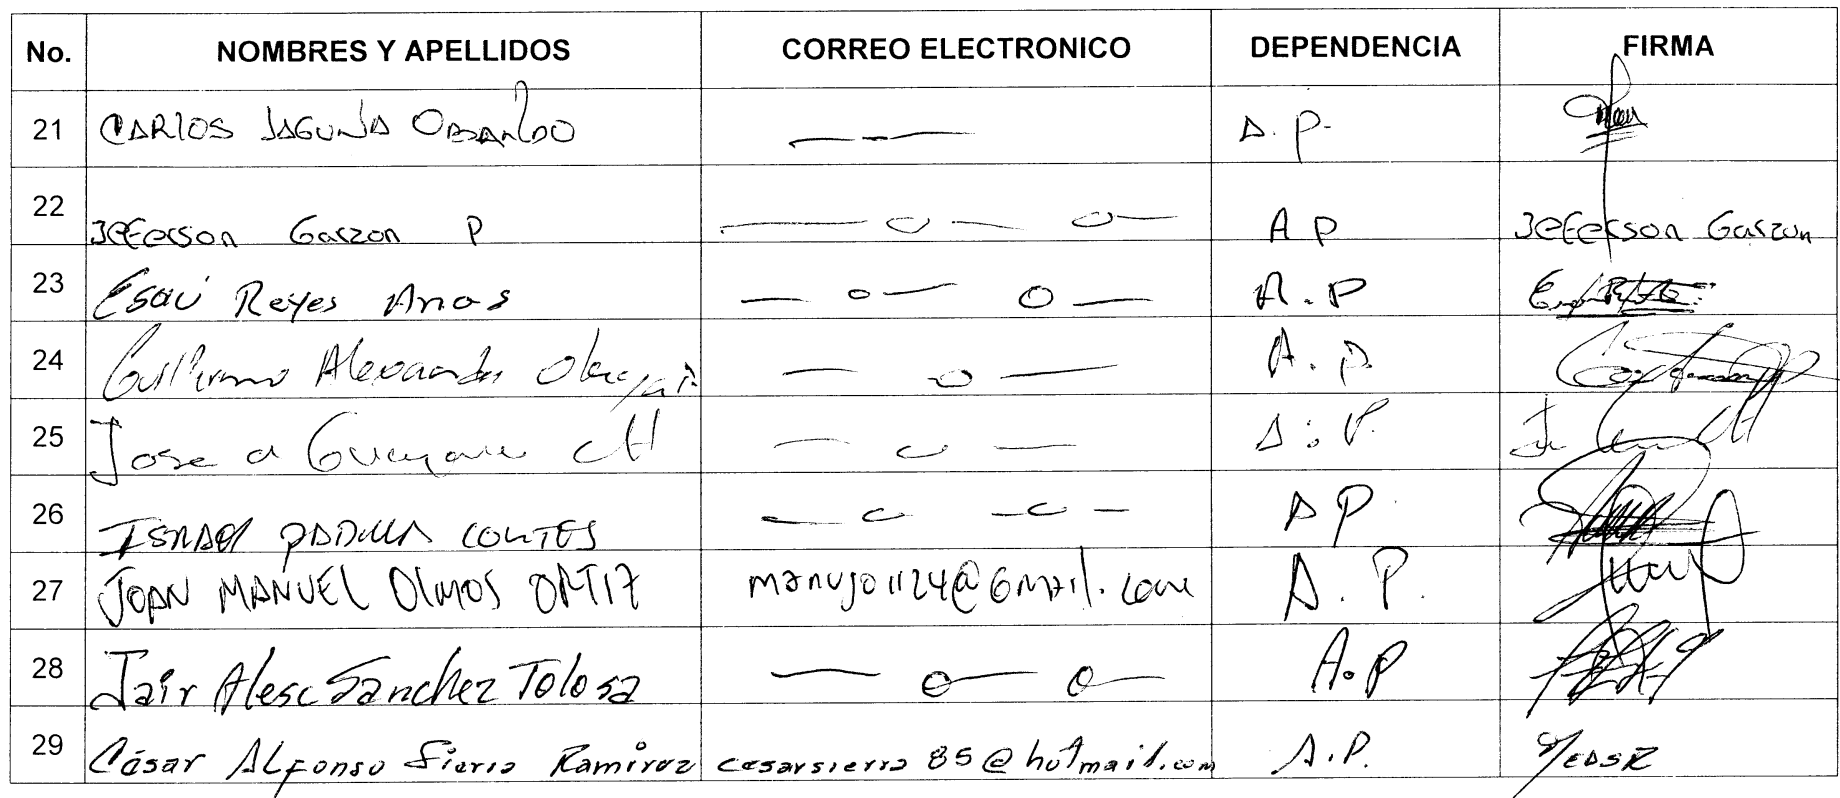 No. NOMBRES Y APELLIDOS CORREO ELECTRONICO DEPENDENCIA FIRMA
21 CARLOS LAGUNA OBANDO — — A. P.
22 Jeferson Garzon P — o — o — A P Jeferson Garzon
23 Esaú Reyes Arias — o — o — A. P
24 Guillermo Alexander — o — A. P.
25 Jose a — o — A. P.
26 ISRAEL PADILLA CORTES — o — o — A P
27 JOAN MANUEL OLMOS ORTIZ manujo1124@Gmail.com A. P.
28 Jair Alesc Sanchez Tolosa — o — o — A. P
29 César Alfonso Sierra Ramirez cesarsierra85@hotmail.com A. P.